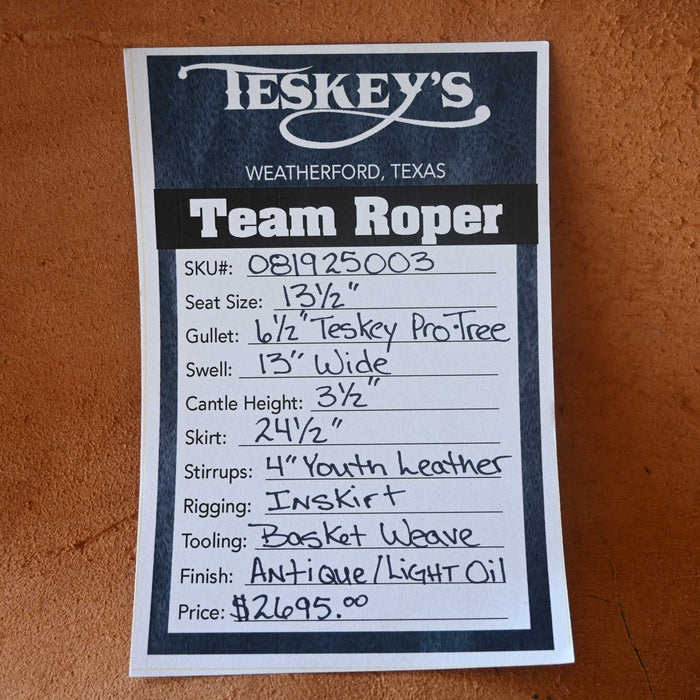 TESKEY'S
WEATHERFORD, TEXAS
Team Roper
SKU#: 081925003
Seat Size: 13½"
Gullet: 6½" Teskey Pro·Tree
Swell: 13" Wide
Cantle Height: 3½"
Skirt: 24½"
Stirrups: 4" Youth Leather
Rigging: Inskirt
Tooling: Basket Weave
Finish: Antique/Light Oil
Price: $2695.00